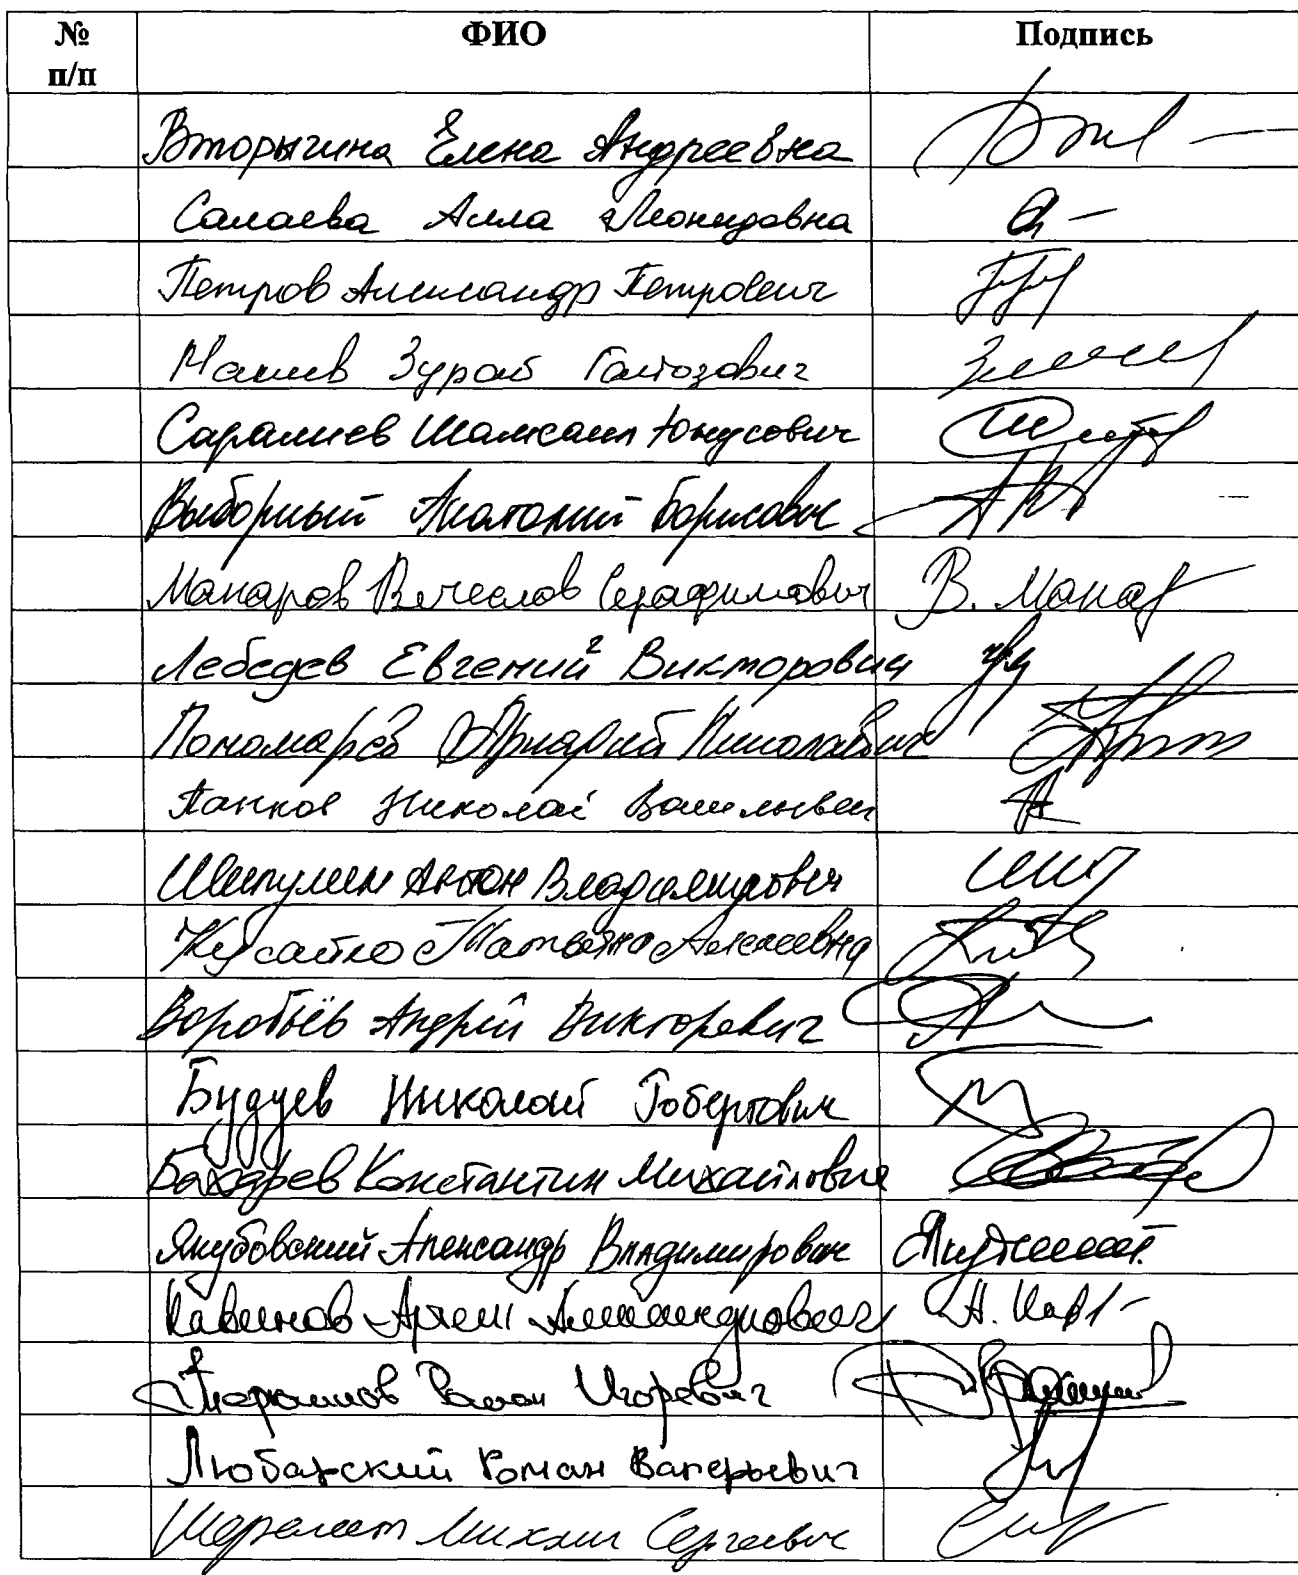 № п/п ФИО Подпись
Вторыгина Елена Андреевна
Салаева Алла Леонидовна
Петров Александр Петрович
Макиев Зураб Гайозович
Саралиев Шамсаил Юнусович
Выборный Анатолий Борисович
Макаров Вячеслав Серафимович В. Макар
Лебедев Евгений Викторович
Пономарёв Аркадий Николаевич
Панков Николай Васильевич
Шипулин Антон Владимирович
Кусайко Татьяна Алексеевна
Воробьёв Андрей Викторович
Будуев Николай Робертович
Бахарев Константин Михайлович
Якубовский Александр Владимирович
Кавинов Артём Александрович А. Кав
Роман Игоревич
Любарский Роман Валерьевич
Шеремет Михаил Сергеевич